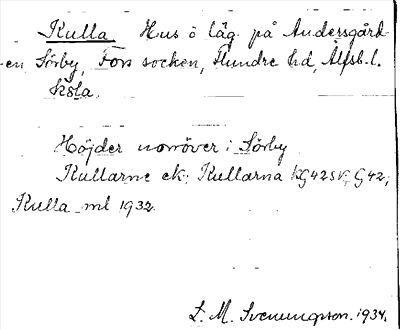 Kulla Hus o läg. på Andersgård
-en Sörby, Fors socken, Flundre hd, Älfsb. l.
kola.
Höjder norröver i Sörby
Kullarne ek; Kullarna KG42SV; G42;
Kulla ml 1932.
L. M. Svenungsson. 1934.